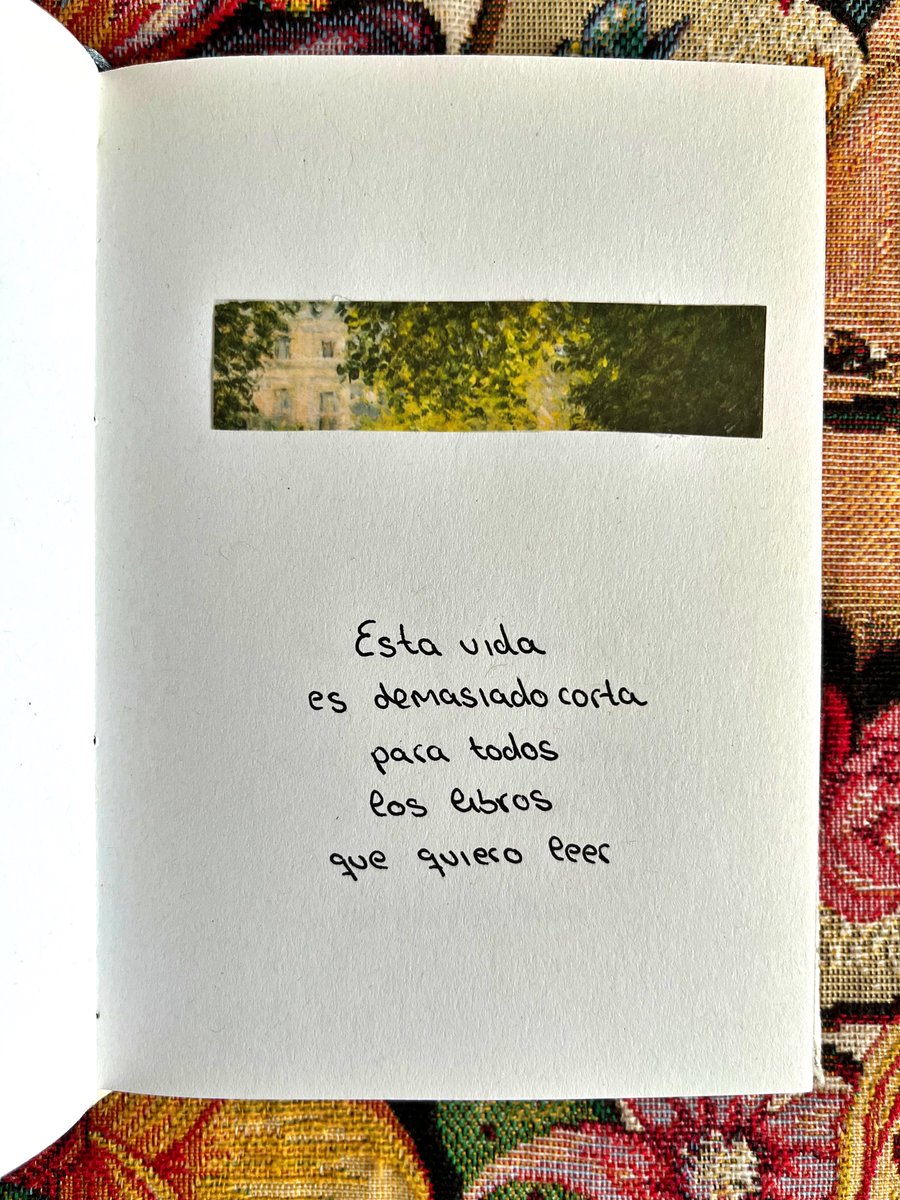 Esta vida
es demasiado corta
para todos
los libros
que quiero leer